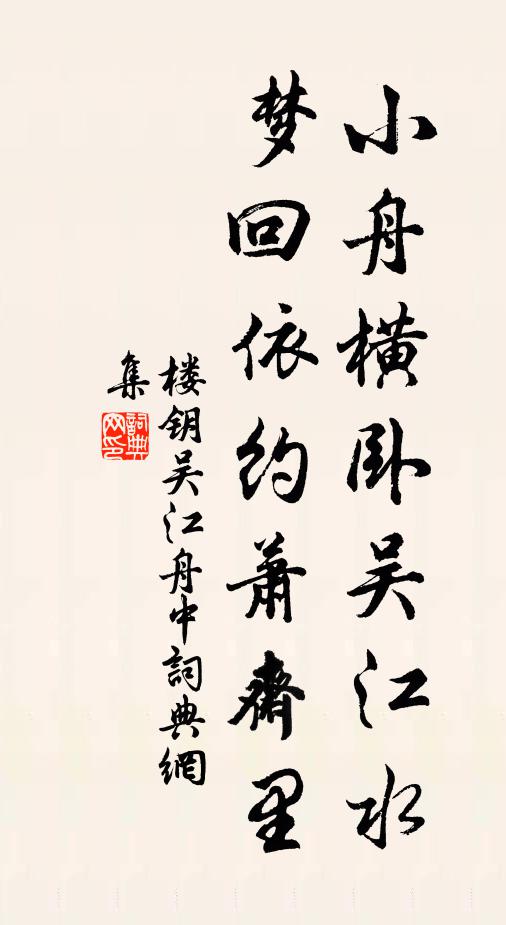 小舟橫卧吴江水
梦回依约蕭齋里
楼钥吴江舟中詞典網
集
詞典网印